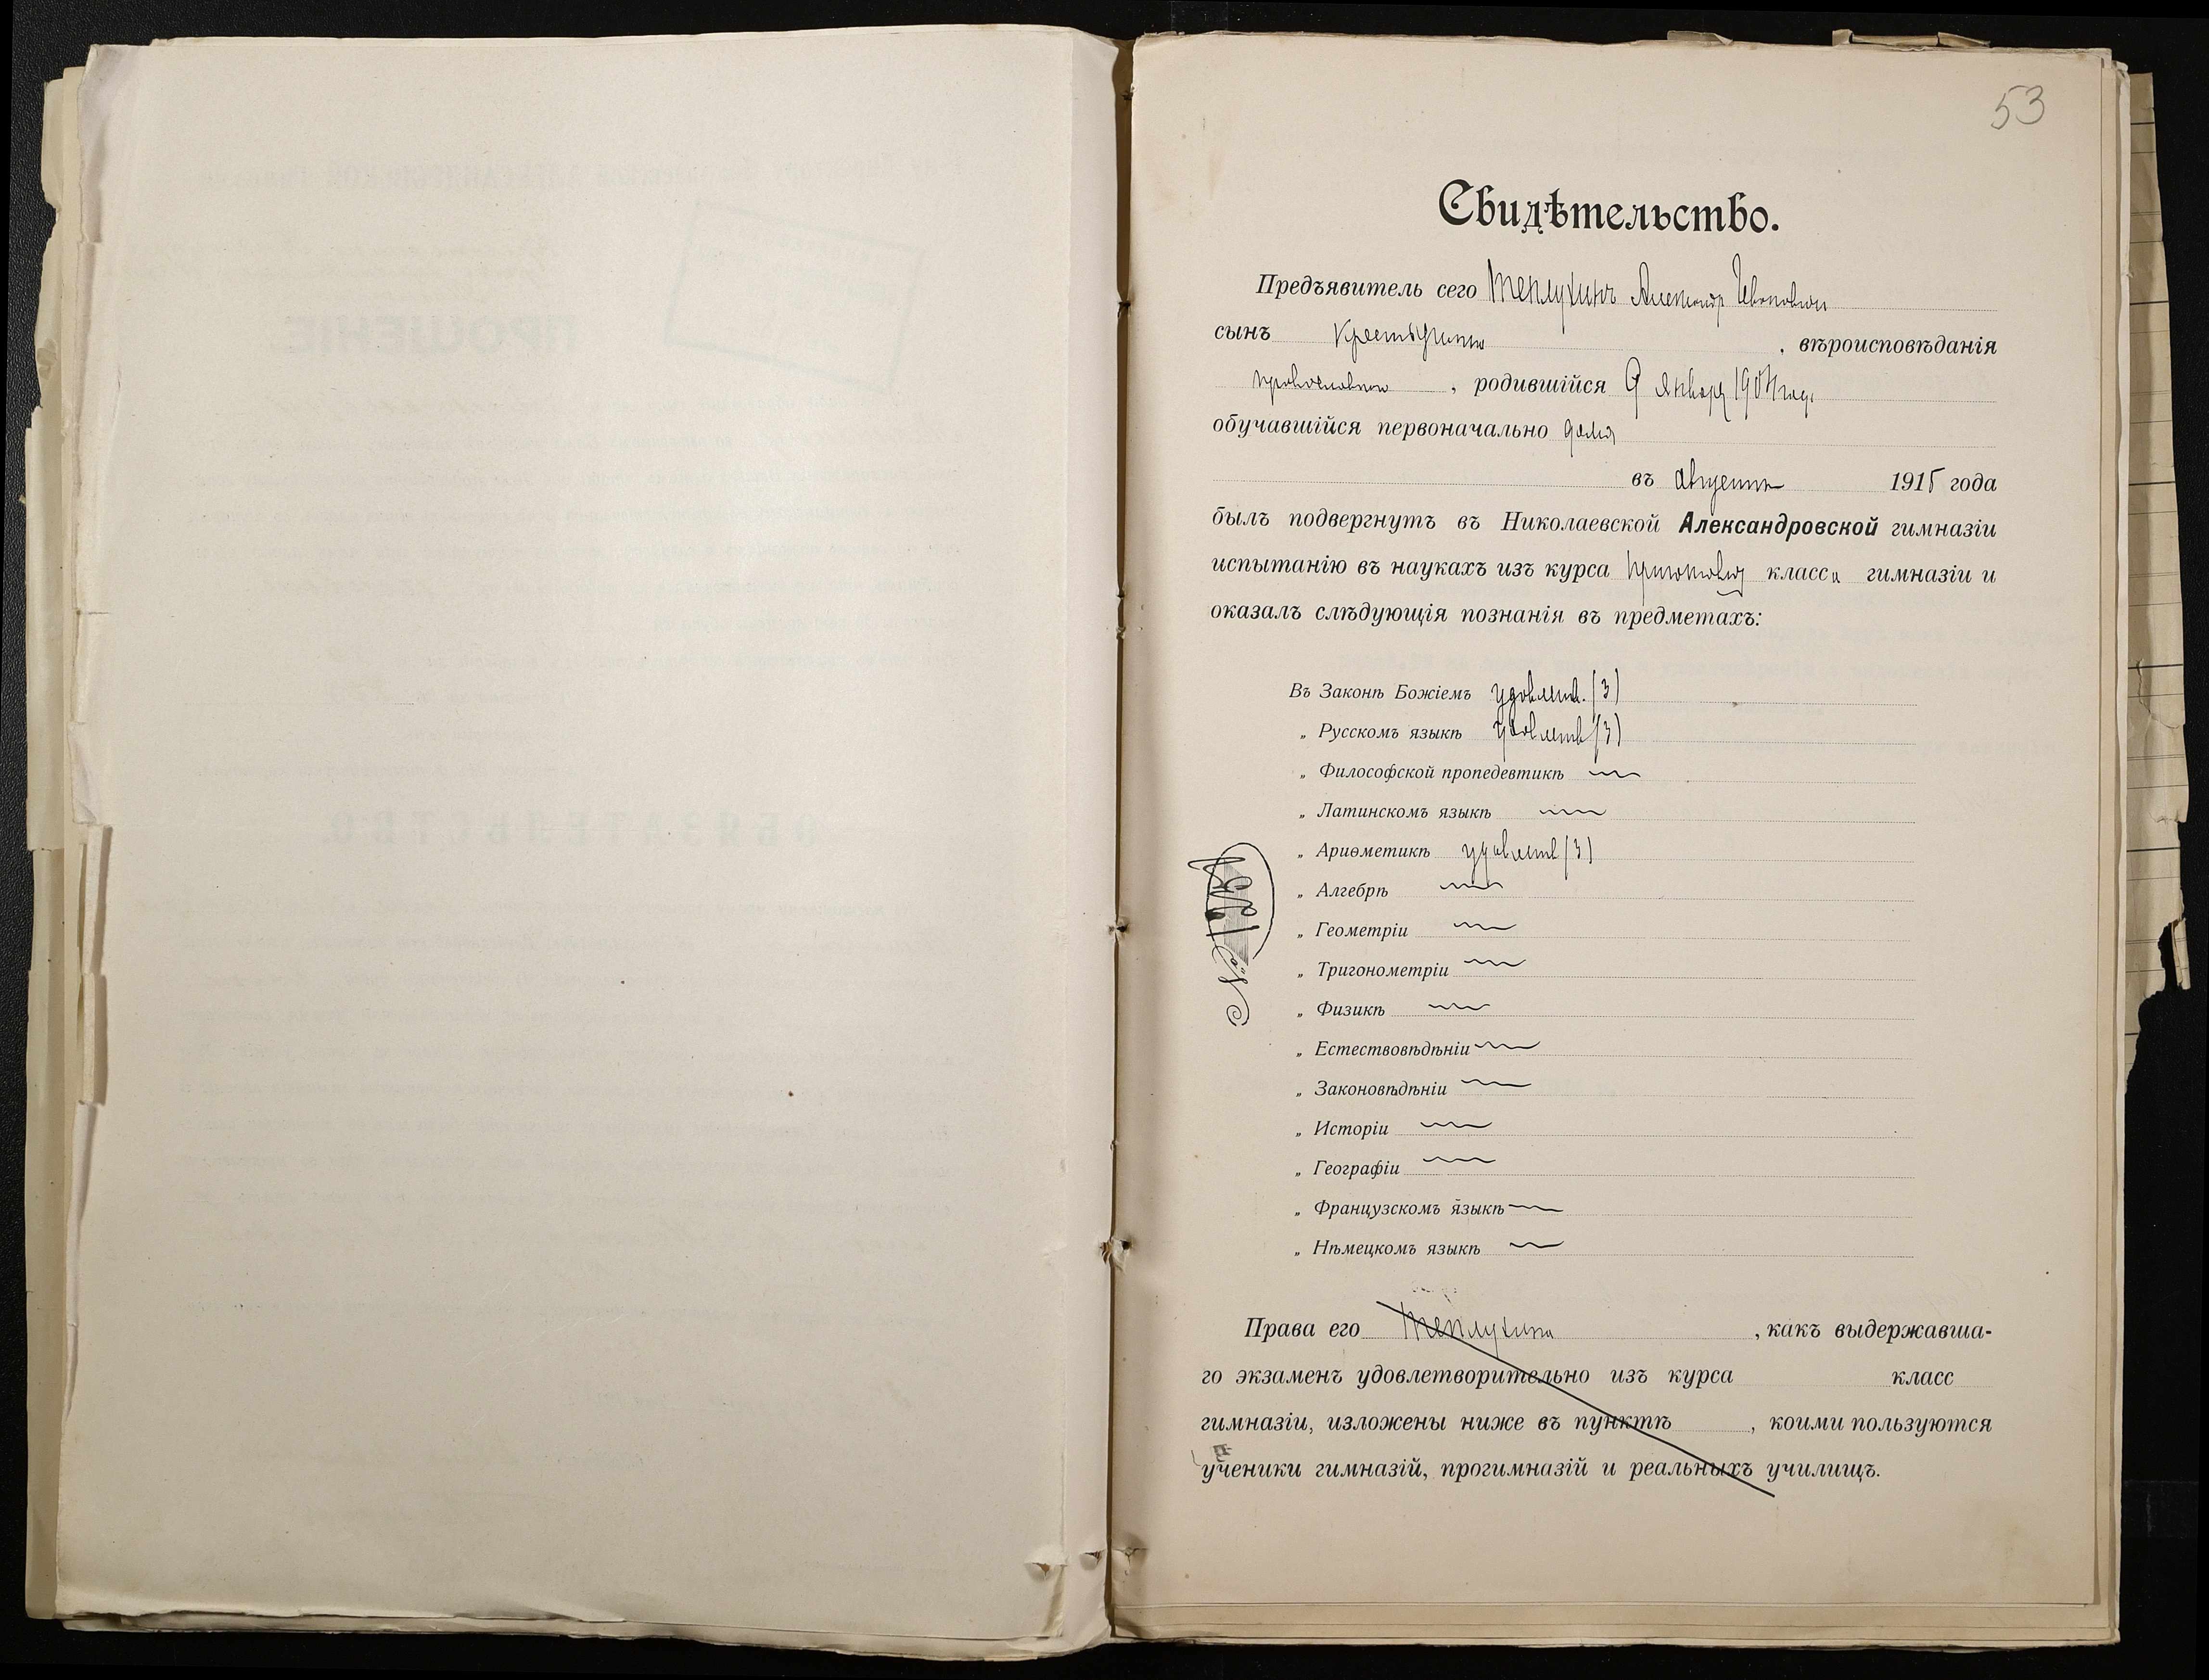 53
Свидѣтельство.
Предъявитель сего Теплухинъ Александр Иванович
сынъ крестьянина , вѣроисповѣданія
православнаго , родившійся 9 января 1904 года
обучавшійся первоначально дома
въ августѣ 1915 года
былъ подвергнутъ въ Николаевской Александровской гимназіи
испытанію въ наукахъ изъ курса класса гимназіи и
оказалъ слѣдующія познанія въ предметахъ:
Въ Законѣ Божіемъ удовлетв. (3)
„ Русскомъ языкѣ удовлетв (3)
„ Философской пропедевтикѣ
„ Латинскомъ языкѣ
„ Ариѳметикѣ удовлетв (3)
„ Алгебрѣ
„ Геометріи
„ Тригонометріи
„ Физикѣ
„ Естествовѣдѣніи
„ Законовѣдѣніи
„ Исторіи
„ Географіи
„ Французскомъ языкѣ
„ Нѣмецкомъ языкѣ
Права его Теплухина , какъ выдержавша-
го экзаменъ удовлетворительно изъ курса класс
гимназіи, изложены ниже въ пунктѣ , коими пользуются
ученики гимназій, прогимназій и реальныхъ училищъ.